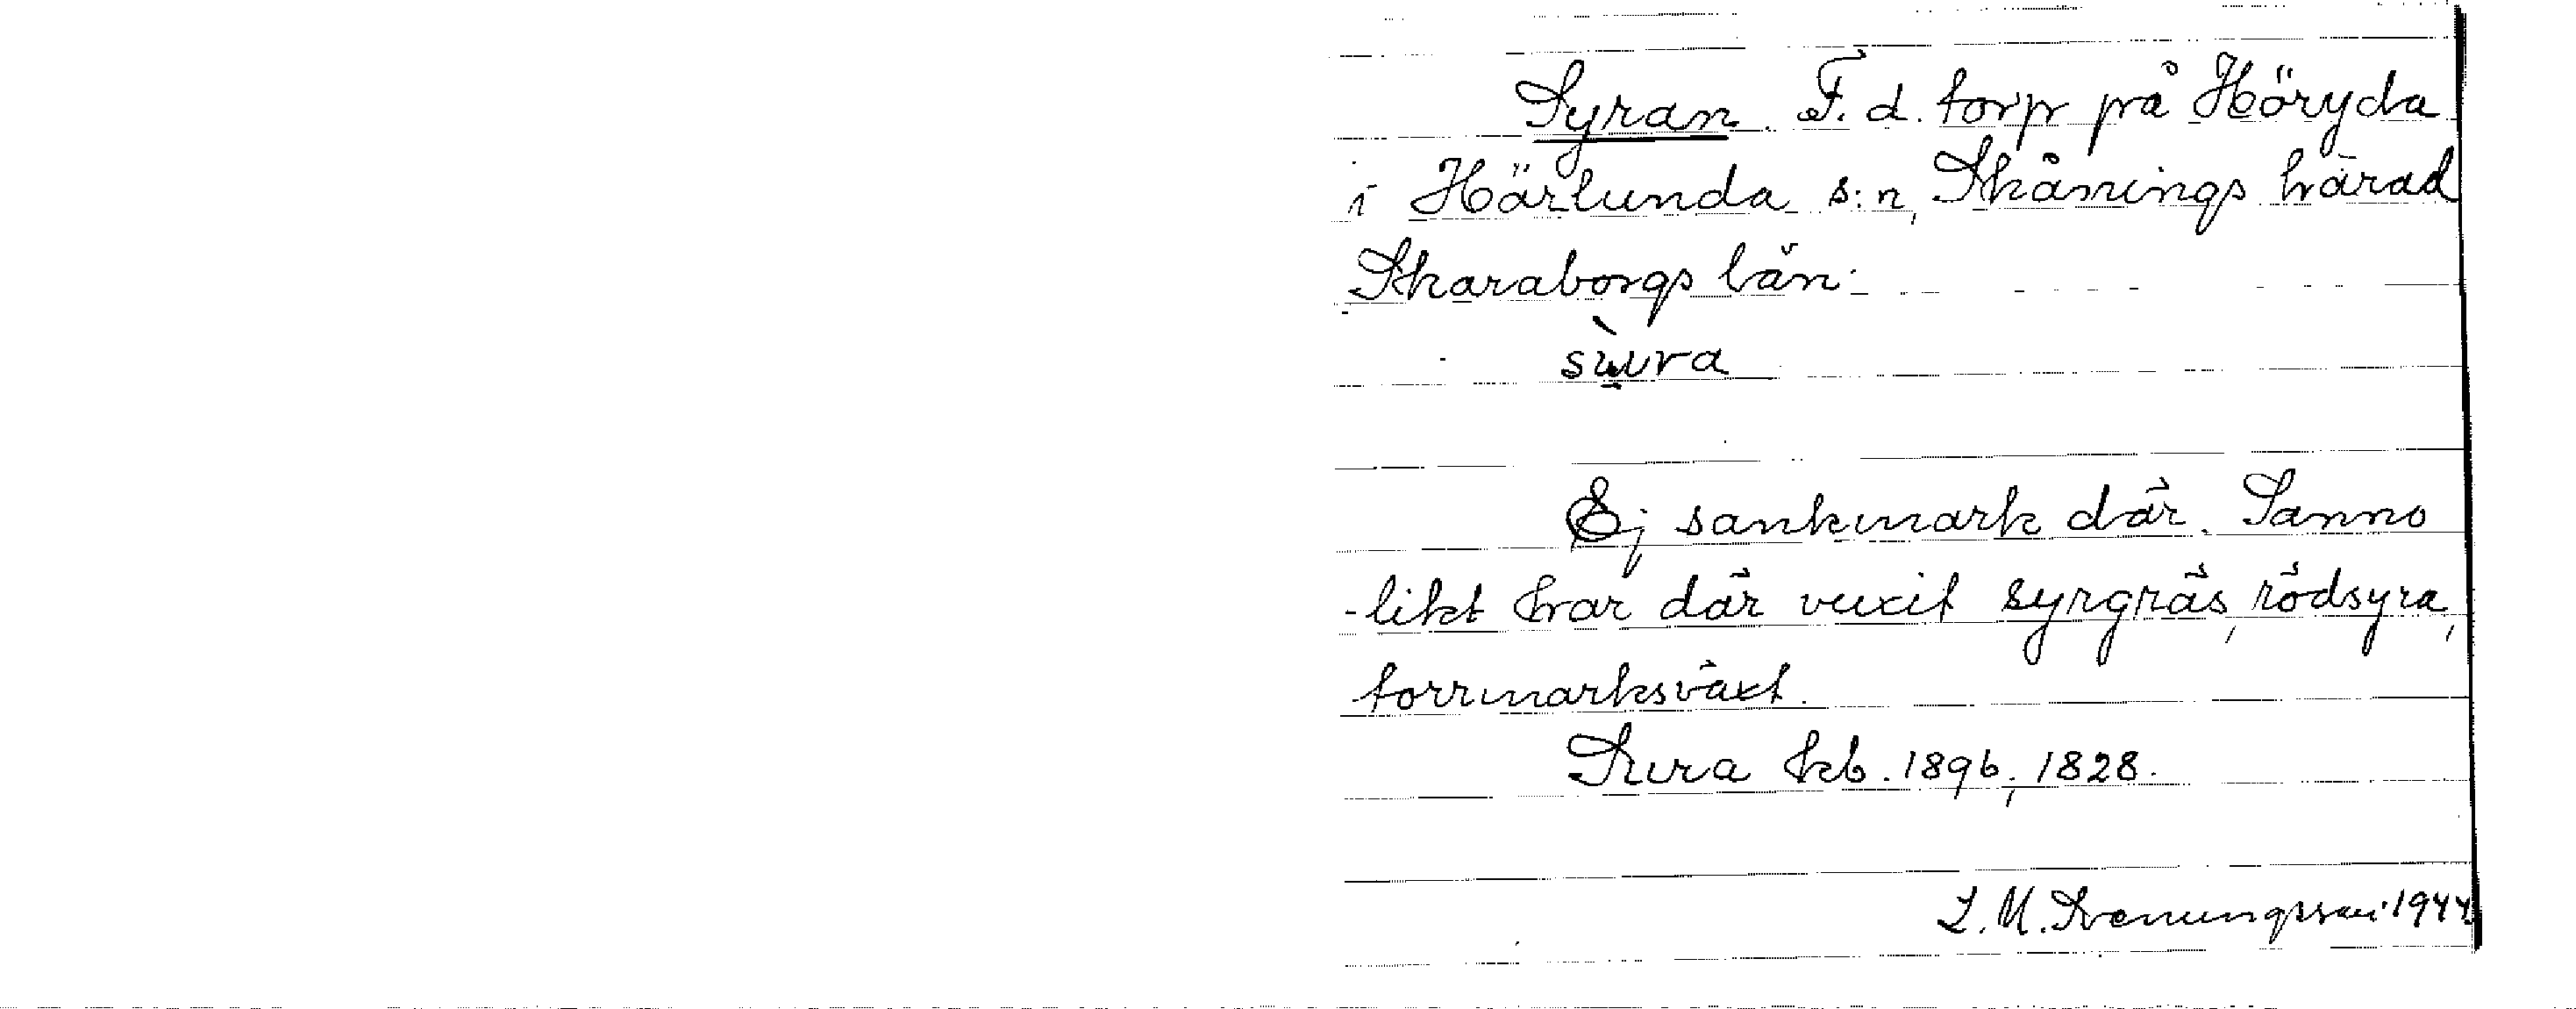 Syran. F. d. torp på Höryda
i Härlunda s:n, Skånings härad
Skaraborgs län.
sùvra
Ej sankmark där. Sanno
-likt har där vuxit syrgräs, rödsyra,
torrmarksväxt.
Sura kb. 1896, 1828.
L. M. Svenungsson 1944